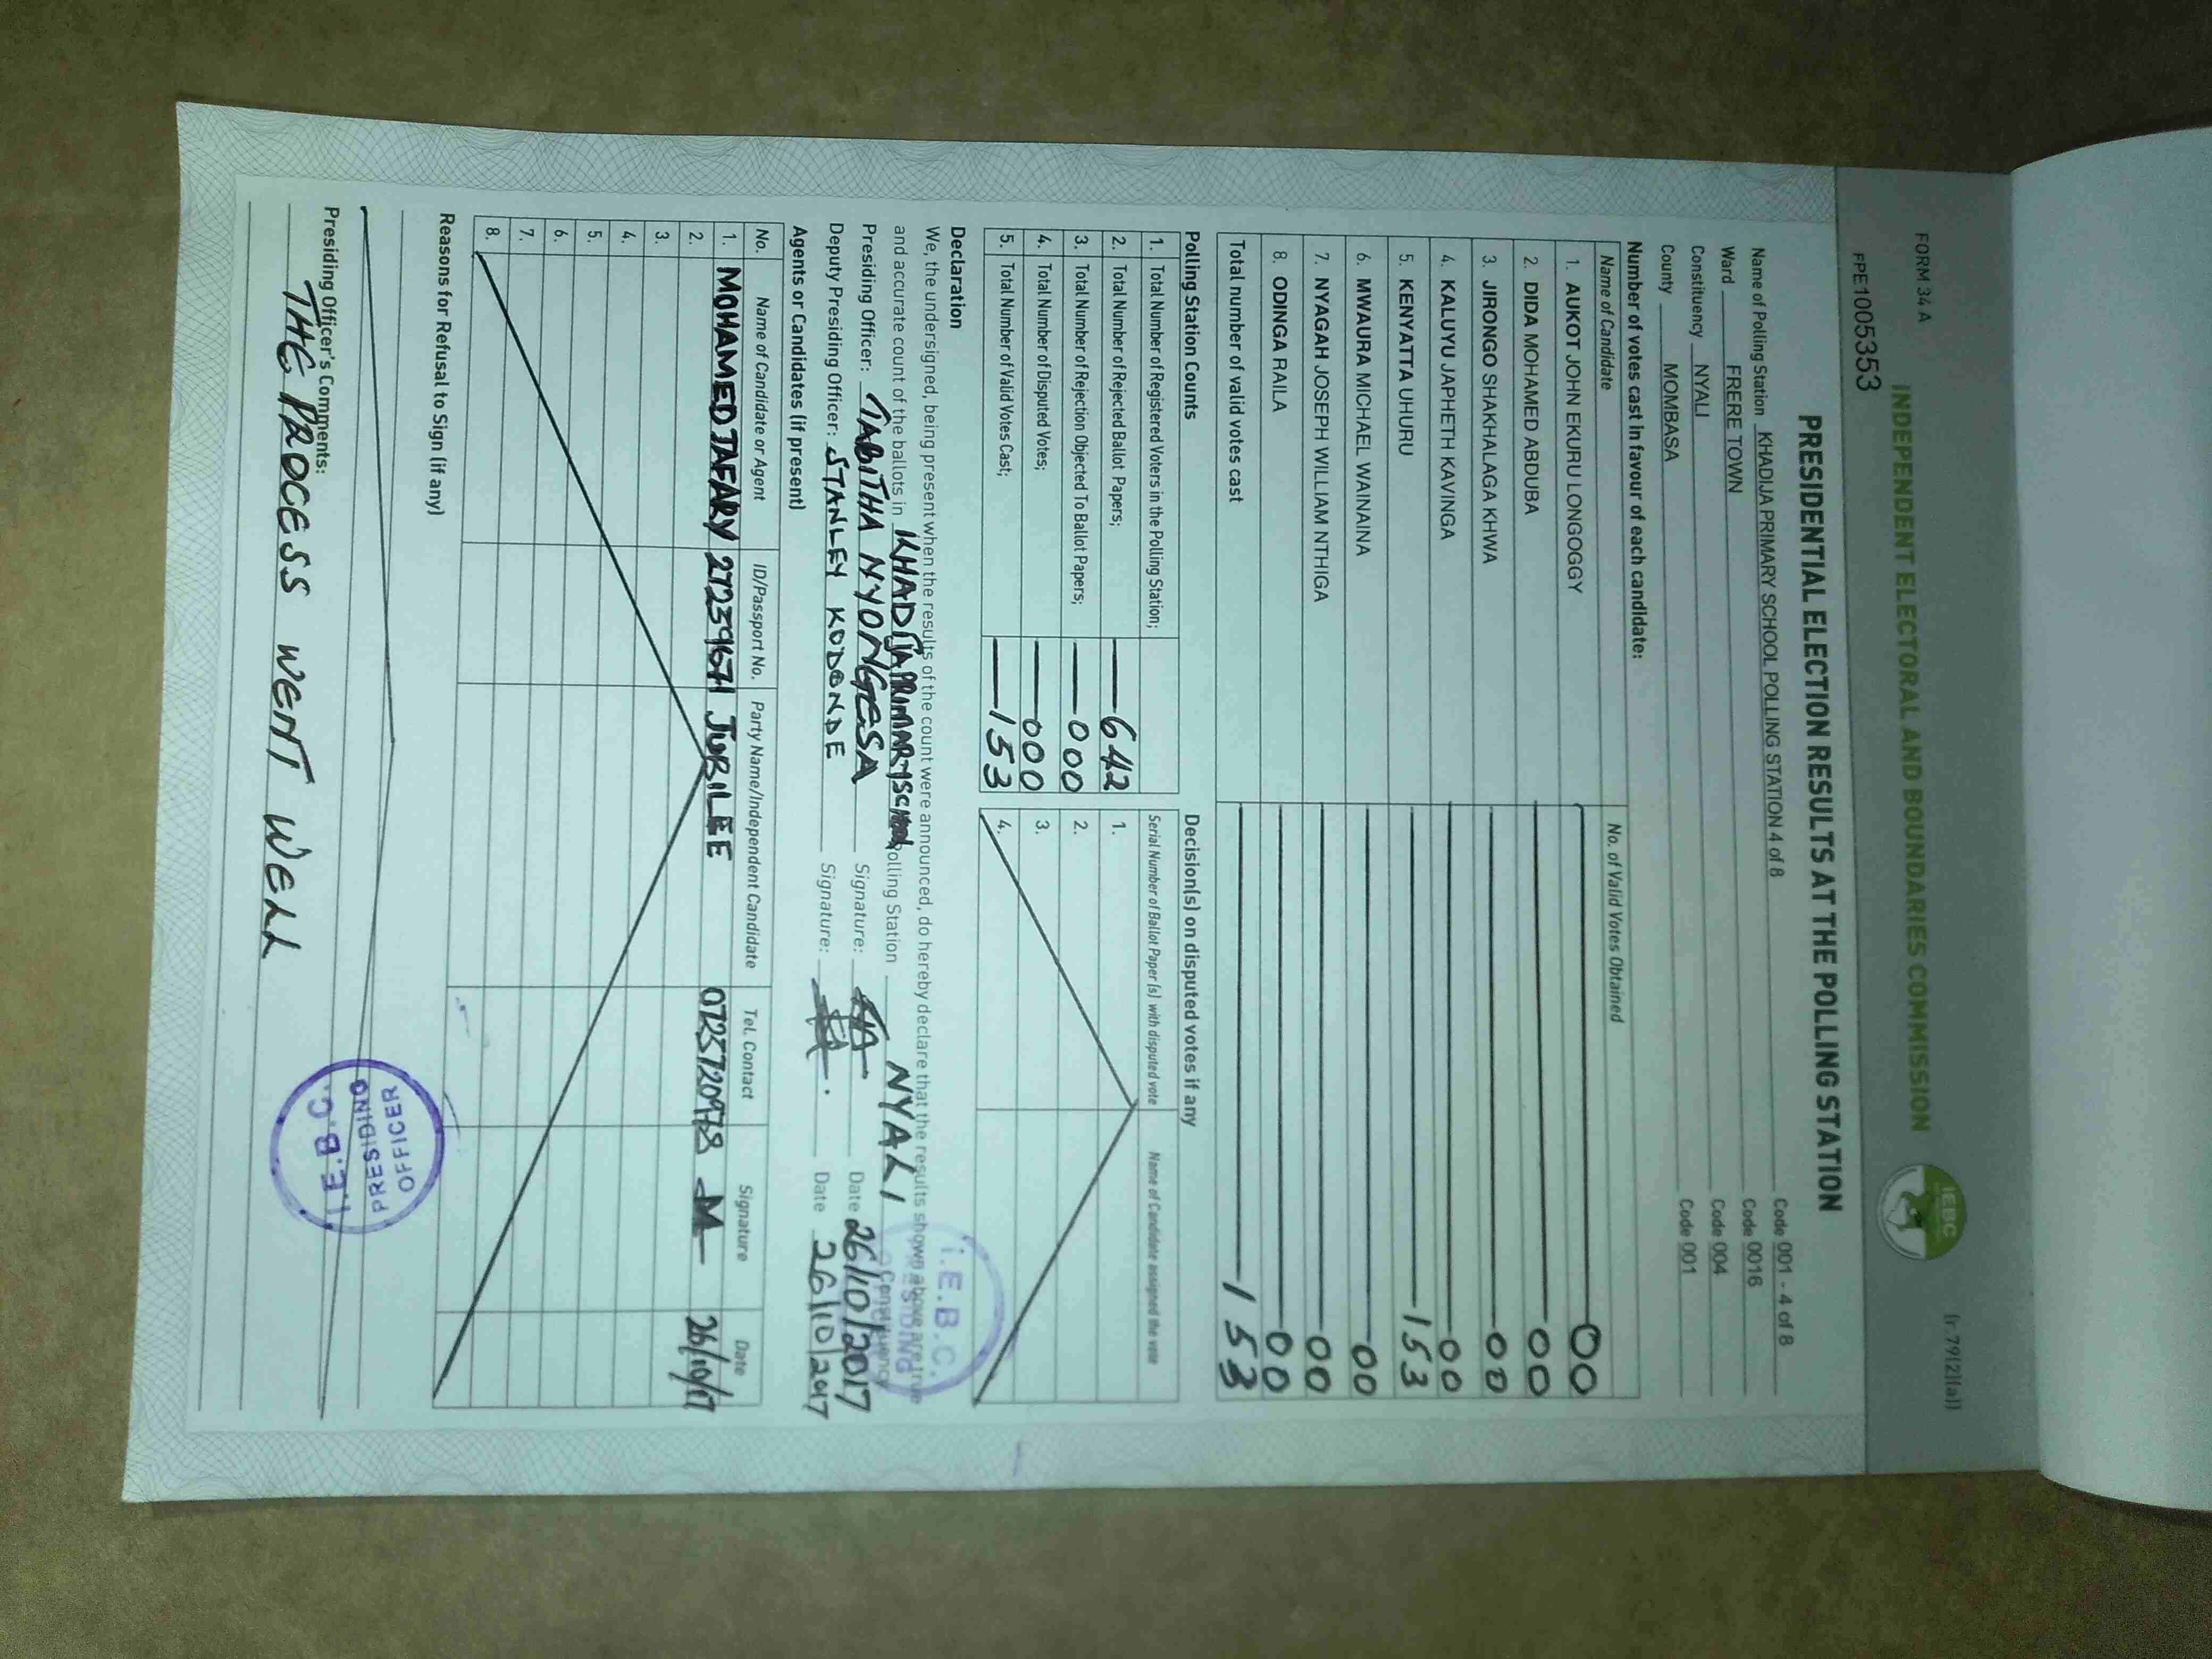 FORM 34 A
(r.79(2)(a))
INDEPENDENT ELECTORAL AND BOUNDARIES COMMISSION
IEBC
FPE1005353
PRESIDENTIAL ELECTION RESULTS AT THE POLLING STATION
Name of Polling Station KHADIJA PRIMARY SCHOOL POLLING STATION 4 of 8 Code 001 - 4 of 8
Ward FRERE TOWN Code 0016
Constituency NYALI Code 004
County MOMBASA Code 001
Number of votes cast in favour of each candidate:
Name of Candidate No. of Valid Votes Obtained
1. AUKOT JOHN EKURU LONGOGGY 00
2. DIDA MOHAMED ABDUBA 00
3. JIRONGO SHAKHALAGA KHWA 00
4. KALUYU JAPHETH KAVINGA 00
5. KENYATTA UHURU 153
6. MWAURA MICHAEL WAINAINA 00
7. NYAGAH JOSEPH WILLIAM NTHIGA 00
8. ODINGA RAILA 00
Total number of valid votes cast 153
Polling Station Counts
1. Total Number of Registered Voters in the Polling Station;
2. Total Number of Rejected Ballot Papers; 642
3. Total Number of Rejection Objected To Ballot Papers; 000
4. Total Number of Disputed Votes; 000
5. Total Number of Valid Votes Cast; 153
Decision(s) on disputed votes if any
Serial Number of Ballot Paper (s) with disputed vote Name of Candidate assigned the vote
1.
2.
3.
4.
Declaration
We, the undersigned, being present when the results of the count were announced, do hereby declare that the results shown above are true
and accurate count of the ballots in KHADIJA PRIMARY SCHOOL Polling Station NYALI Constituency
I.E.B.C.
Presiding Officer: TABITHA NYONGESA Signature: Date 26/10/2017
Deputy Presiding Officer: STANLEY KODONDE Signature: Date 26/10/2017
Agents or Candidates (if present)
No. Name of Candidate or Agent ID/Passport No. Party Name/Independent Candidate Tel. Contact Signature Date
1. MOHAMED JAFARY 27259671 JUBILEE 0725720978 26/10/17
2.
3.
4.
5.
6.
7.
8.
Reasons for Refusal to Sign (if any)
Presiding Officer's Comments:
THE PROCESS WENT WELL
I.E.B.C.
PRESIDING
OFFICER